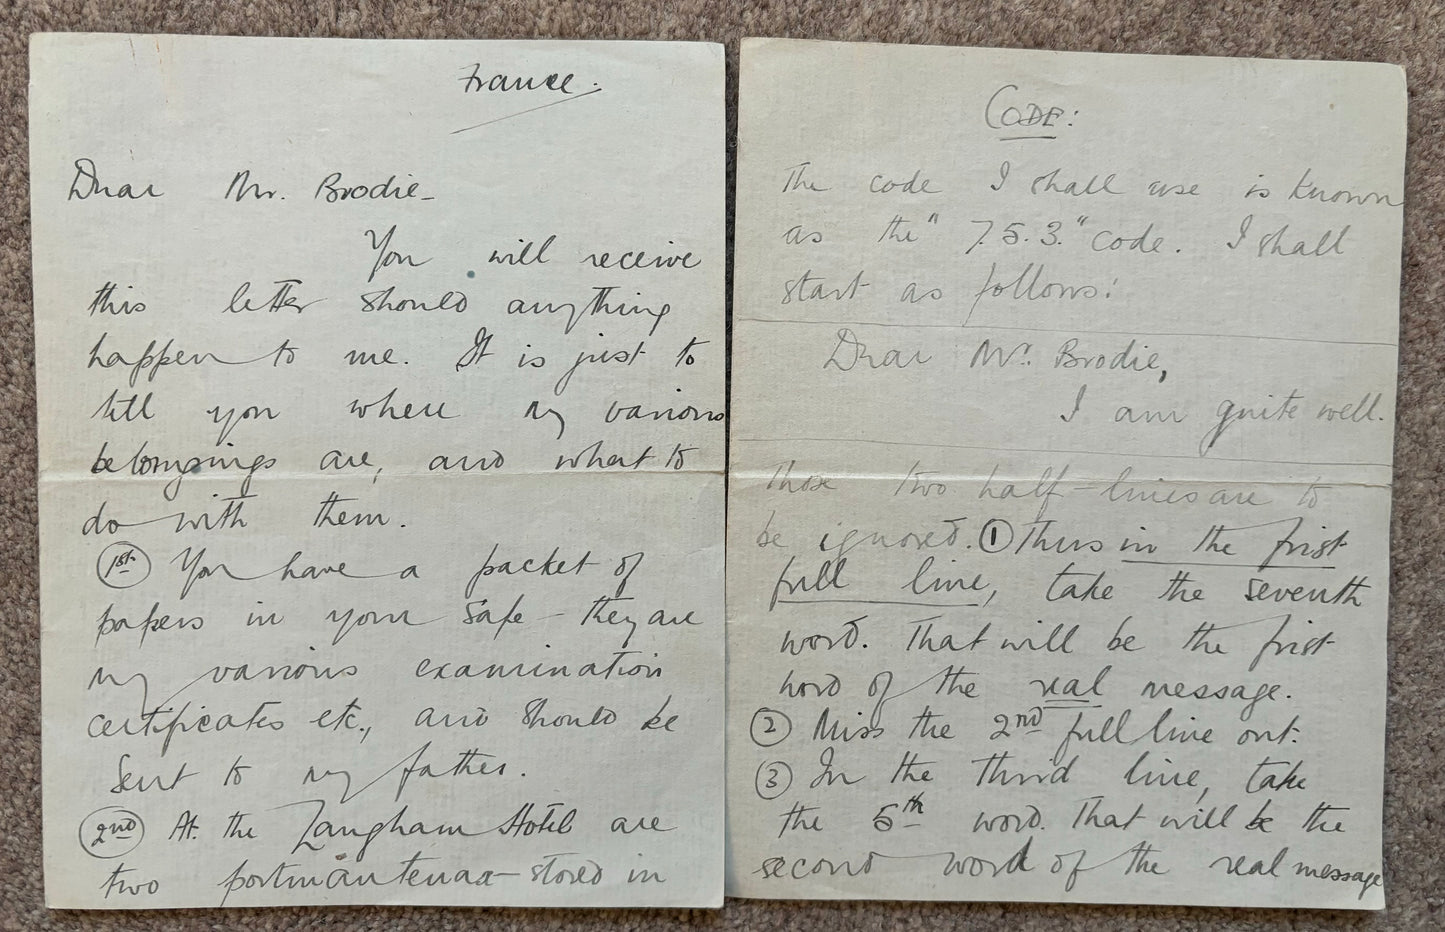 France.
Dear Mr. Brodie -
You will receive
this letter should anything
happen to me. It is just to
tell you where my various
belongings are, and what to
do with them.
1st You have a packet of
papers in your safe - they are
my various examination
certificates etc., and should be
sent to my father.
2nd At the Langham Hotel are
two portmanteaux - stored in
CODE:
The code I shall use is known
as the "7.5.3." code. I shall
start as follows:
Dear Mr. Brodie,
I am quite well.
Those two half-lines are to
be ignored. ① Thus in the first
full line, take the seventh
word. That will be the first
word of the real message.
② Miss the 2nd full line out.
③ In the third line, take
the 5th word. That will be the
second word of the real message